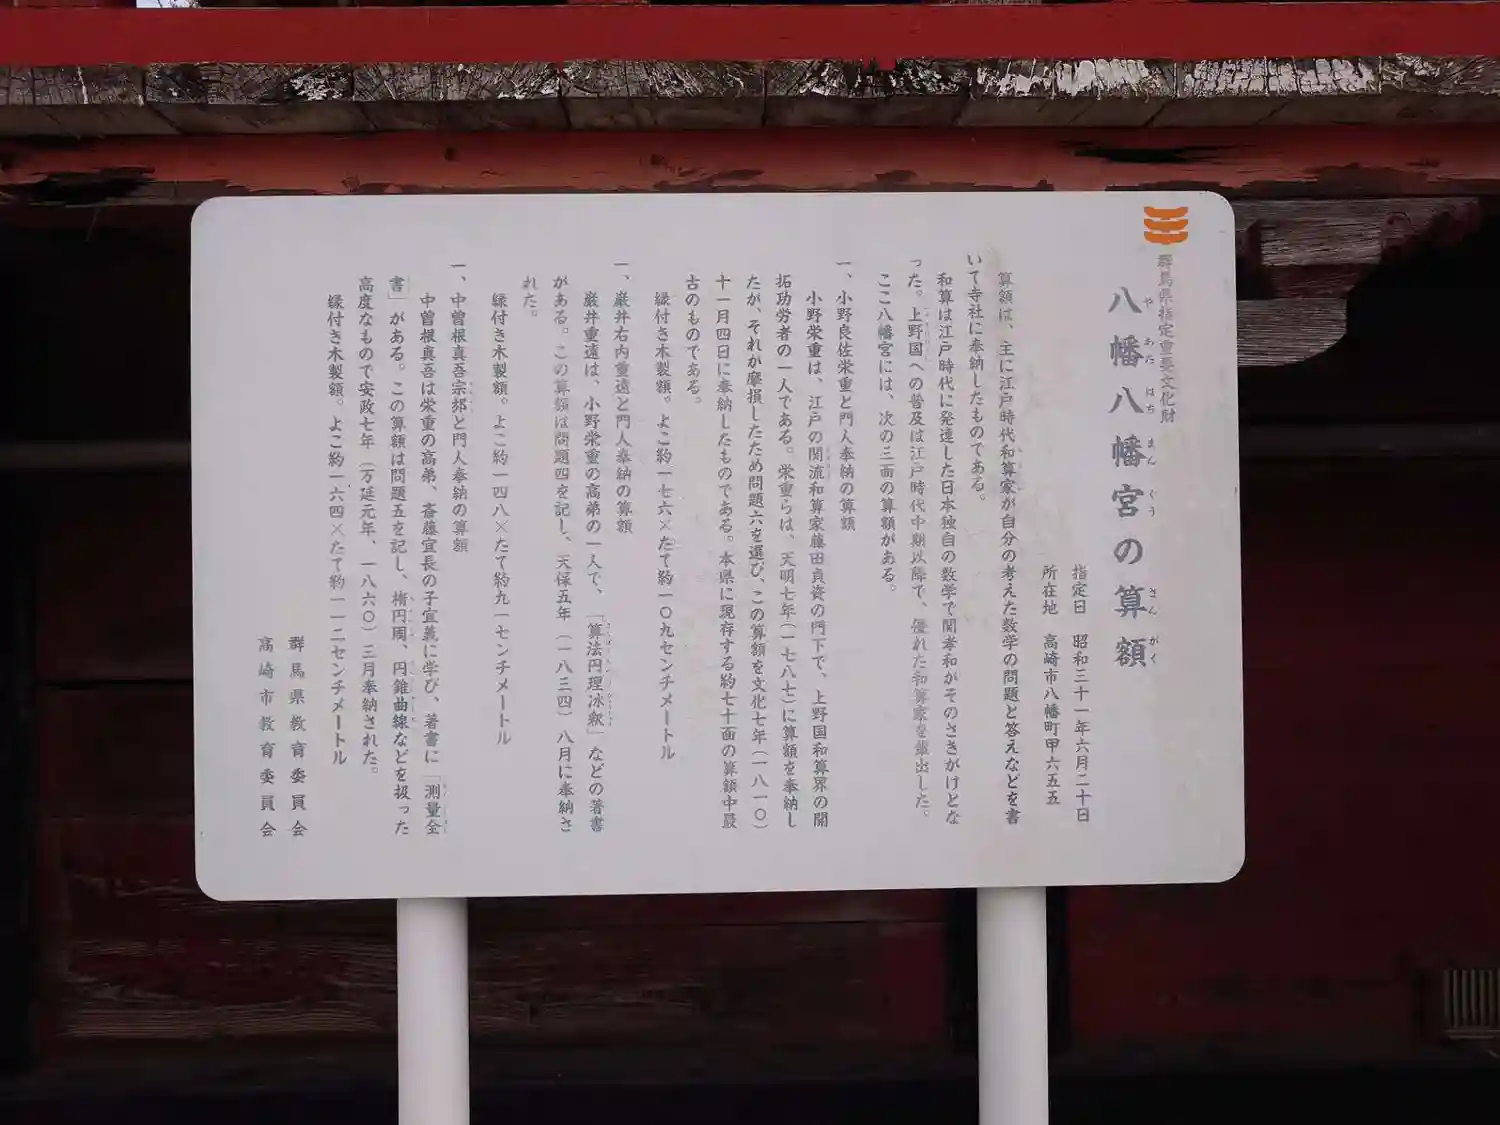 群馬県指定重要文化財
八幡八幡宮の算額
やあたはちまんぐう さんがく
指定日 昭和三十一年六月二十日
所在地 高崎市八幡町甲六五五
算額は、主に江戸時代和算家が自分の考えた数学の問題と答えなどを書
いて寺社に奉納したものである。
和算は江戸時代に発達した日本独自の数学で関孝和がそのさきがけとな
った。上野国への普及は江戸時代中期以降で、優れた和算家を輩出した。
ここ八幡宮には、次の三面の算額がある。
一、小野良佐栄重と門人奉納の算額
小野栄重は、江戸の関流和算家藤田貞資の門下で、上野国和算界の開
拓功労者の一人である。栄重らは、天明七年(一七八七)に算額を奉納し
たが、それが摩損したため問題六を選び、この算額を文化七年(一八一〇)
十一月四日に奉納したものである。本県に現存する約七十面の算額中最
古のものである。
縁付き木製額。よこ約一七六×たて約一〇九センチメートル
一、巌井右内重遠と門人奉納の算額
巌井重遠は、小野栄重の高弟の一人で、「算法円理冰釈」などの著書
がある。この算額は問題四を記し、天保五年(一八三四)八月に奉納さ
れた。
縁付き木製額。よこ約一四八×たて約九一センチメートル
一、中曽根真吾宗邡と門人奉納の算額
中曽根真吾は栄重の高弟、斎藤宜長の子宜義に学び、著書に「測量全
書」がある。この算額は問題五を記し、楕円周、円錐曲線などを扱った
高度なもので安政七年(万延元年、一八六〇)三月奉納された。
縁付き木製額。よこ約一六四×たて約一一二センチメートル
群馬県教育委員会
高崎市教育委員会